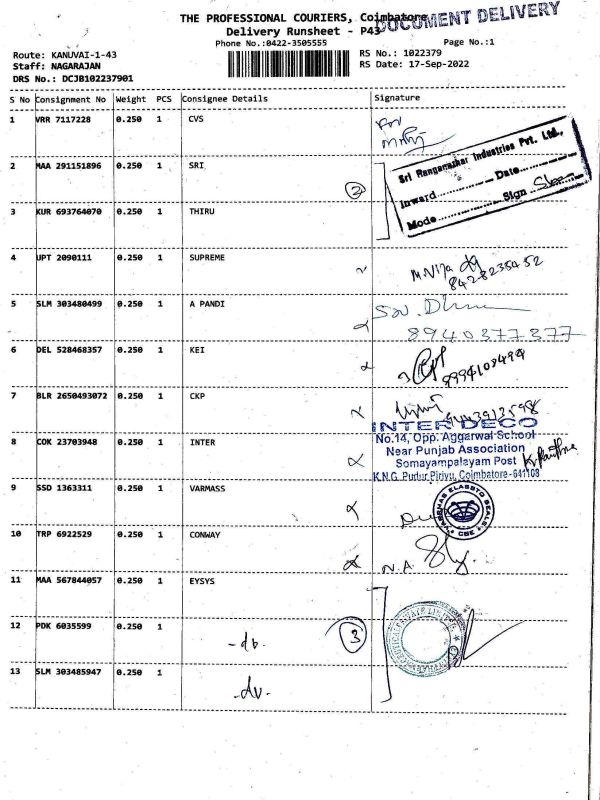 THE PROFESSIONAL COURIERS, Coimbatore
DOCUMENT DELIVERY
Delivery Runsheet - P43
Phone No.:0422-3505555
Page No.:1
Route: KANUVAI-1-43
RS No.: 1022379
Staff: NAGARAJAN
RS Date: 17-Sep-2022
DRS No.: DCJB102237901
S No Consignment No Weight PCS Consignee Details Signature
1 VRR 7117228 0.250 1 CVS
for
2 MAA 291151896 0.250 1 SRI
2
Sri Ranganathar Industries Pvt. Ltd.,
Inward.......... Date..........
Mode.......... Sign
3 KUR 693764070 0.250 1 THIRU
4 UPT 2090111 0.250 1 SUPREME
8428235452
5 SLM 303480499 0.250 1 A PANDI
8940377377
6 DEL 528468357 0.250 1 KEI
8994108494
7 BLR 2650493072 0.250 1 CKP
9443913598
INTER DECO
8 COK 23703948 0.250 1 INTER
No.14, Opp. Aggarwal School
Near Punjab Association
Somayampalayam Post
K.N.G. Pudur Pirivu, Coimbatore-641108
9 SSD 1363311 0.250 1 VARMASS
10 TRP 6922529 0.250 1 CONWAY
N.A
11 MAA 567844057 0.250 1 EYSYS
12 PDK 6035599 0.250 1
3
13 SLM 303485947 0.250 1